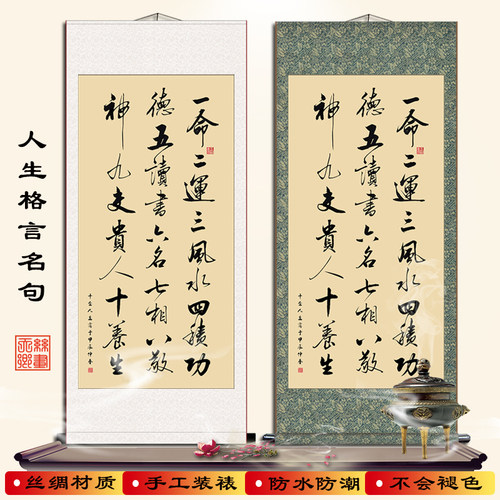 人生格言名句
一命二運三風水四積功
德五讀書六名七相八敬
神九交貴人十養生
一命二運三風水四積功
德五讀書六名七相八敬
神九交貴人十養生
丝绸材质 手工装裱 防水防潮 不会褪色